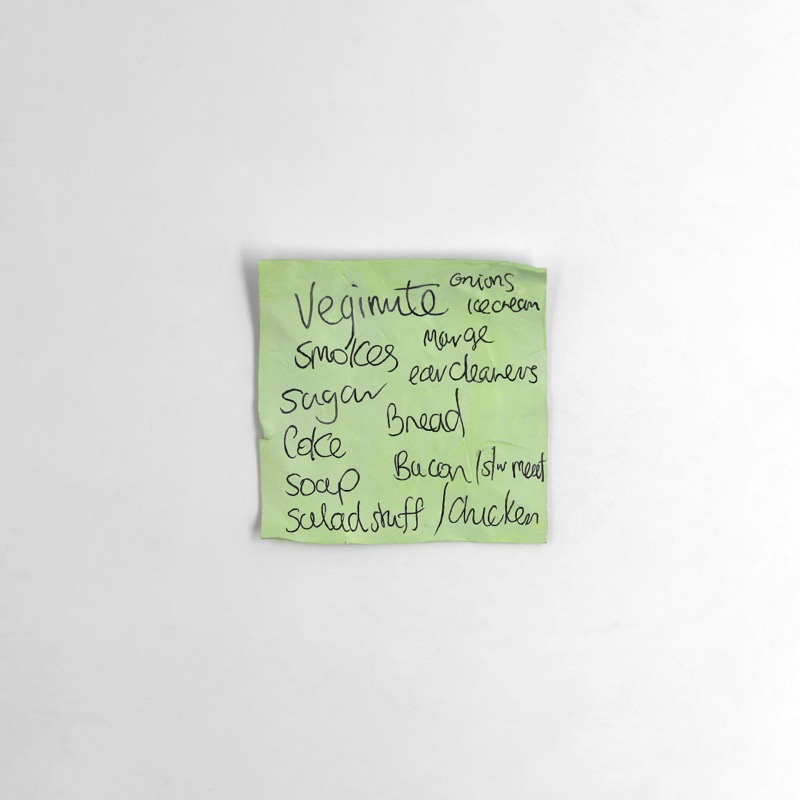 Vegimite
smokes
sugar
Coke
soap
salad stuff / Chicken
onions
icecream
Marge
ear cleaners
Bread
Bacon / s/w meat